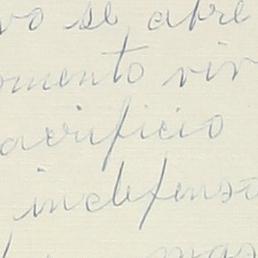 vo se abre
omento viv
acrificio
indefenso
mas